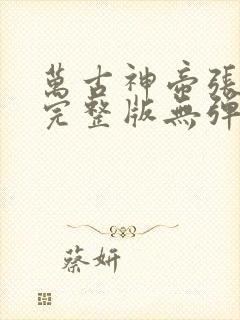 萬古神帝張
完整版無彈
蔡妍